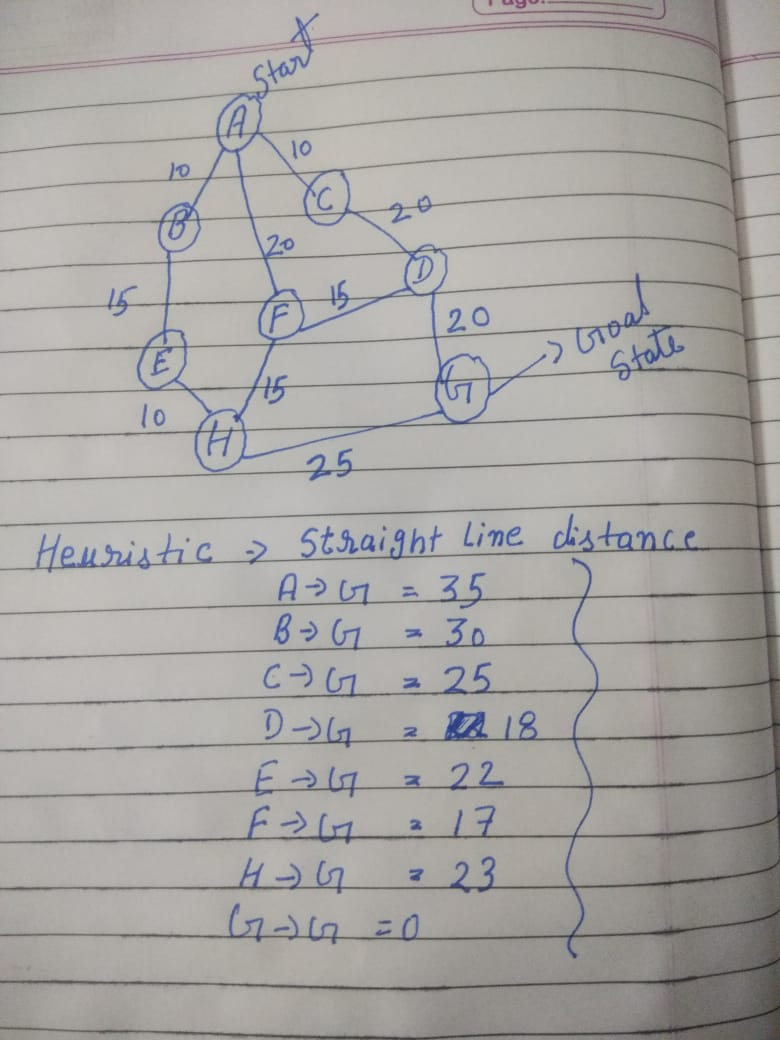 Page:
Start
A
10
10
C
20
B
20
D
15
15
F
20
Goal
State
E
15
G
10
H
25
Heuristic → Straight Line distance
A → G = 35
B → G = 30
C → G = 25
D → G = 18
E → G = 22
F → G = 17
H → G = 23
G → G = 0